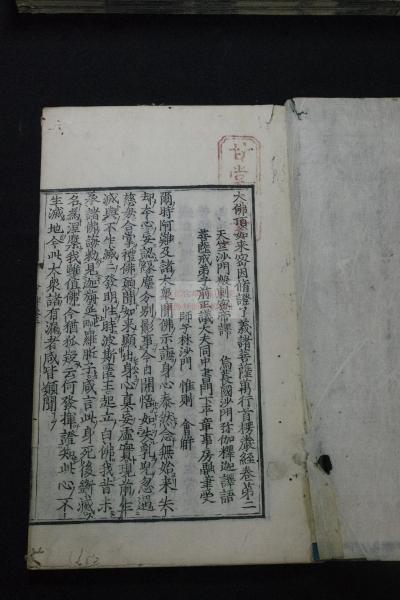 甘堂
大佛頂如來密因脩證了義諸菩薩萬行首楞嚴經卷第二
天竺沙門般剌蜜帝譯 烏萇國沙門弥伽釋迦譯語
菩薩戒弟子前正議大夫同中書門下平章事房融筆受
師子林沙門 惟則 會解
爾時阿難及諸大衆聞佛示誨身心泰然念無始來失
却本心妄認緣塵分別影事今日開悟如失乳兒忽遇
慈母合掌禮佛願聞如來顯出身心真妄虛實現前生
滅與不生滅二發明性時波斯匿王起立白佛我昔未
承諸佛誨敕見迦旃延毗羅胝子咸言此身死後斷滅
名爲涅槃我雖值佛今猶狐疑云何發揮證知此心不
生滅地今此大衆諸有漏者咸皆願聞